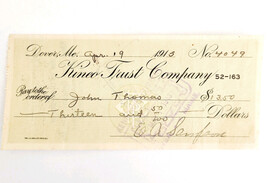 Dover, Me. Apr. 19 1913 No. 4049
Kinco Trust Company 52-163
Pay to the order of John Thomas $13.50
Thirteen and 50/100 Dollars